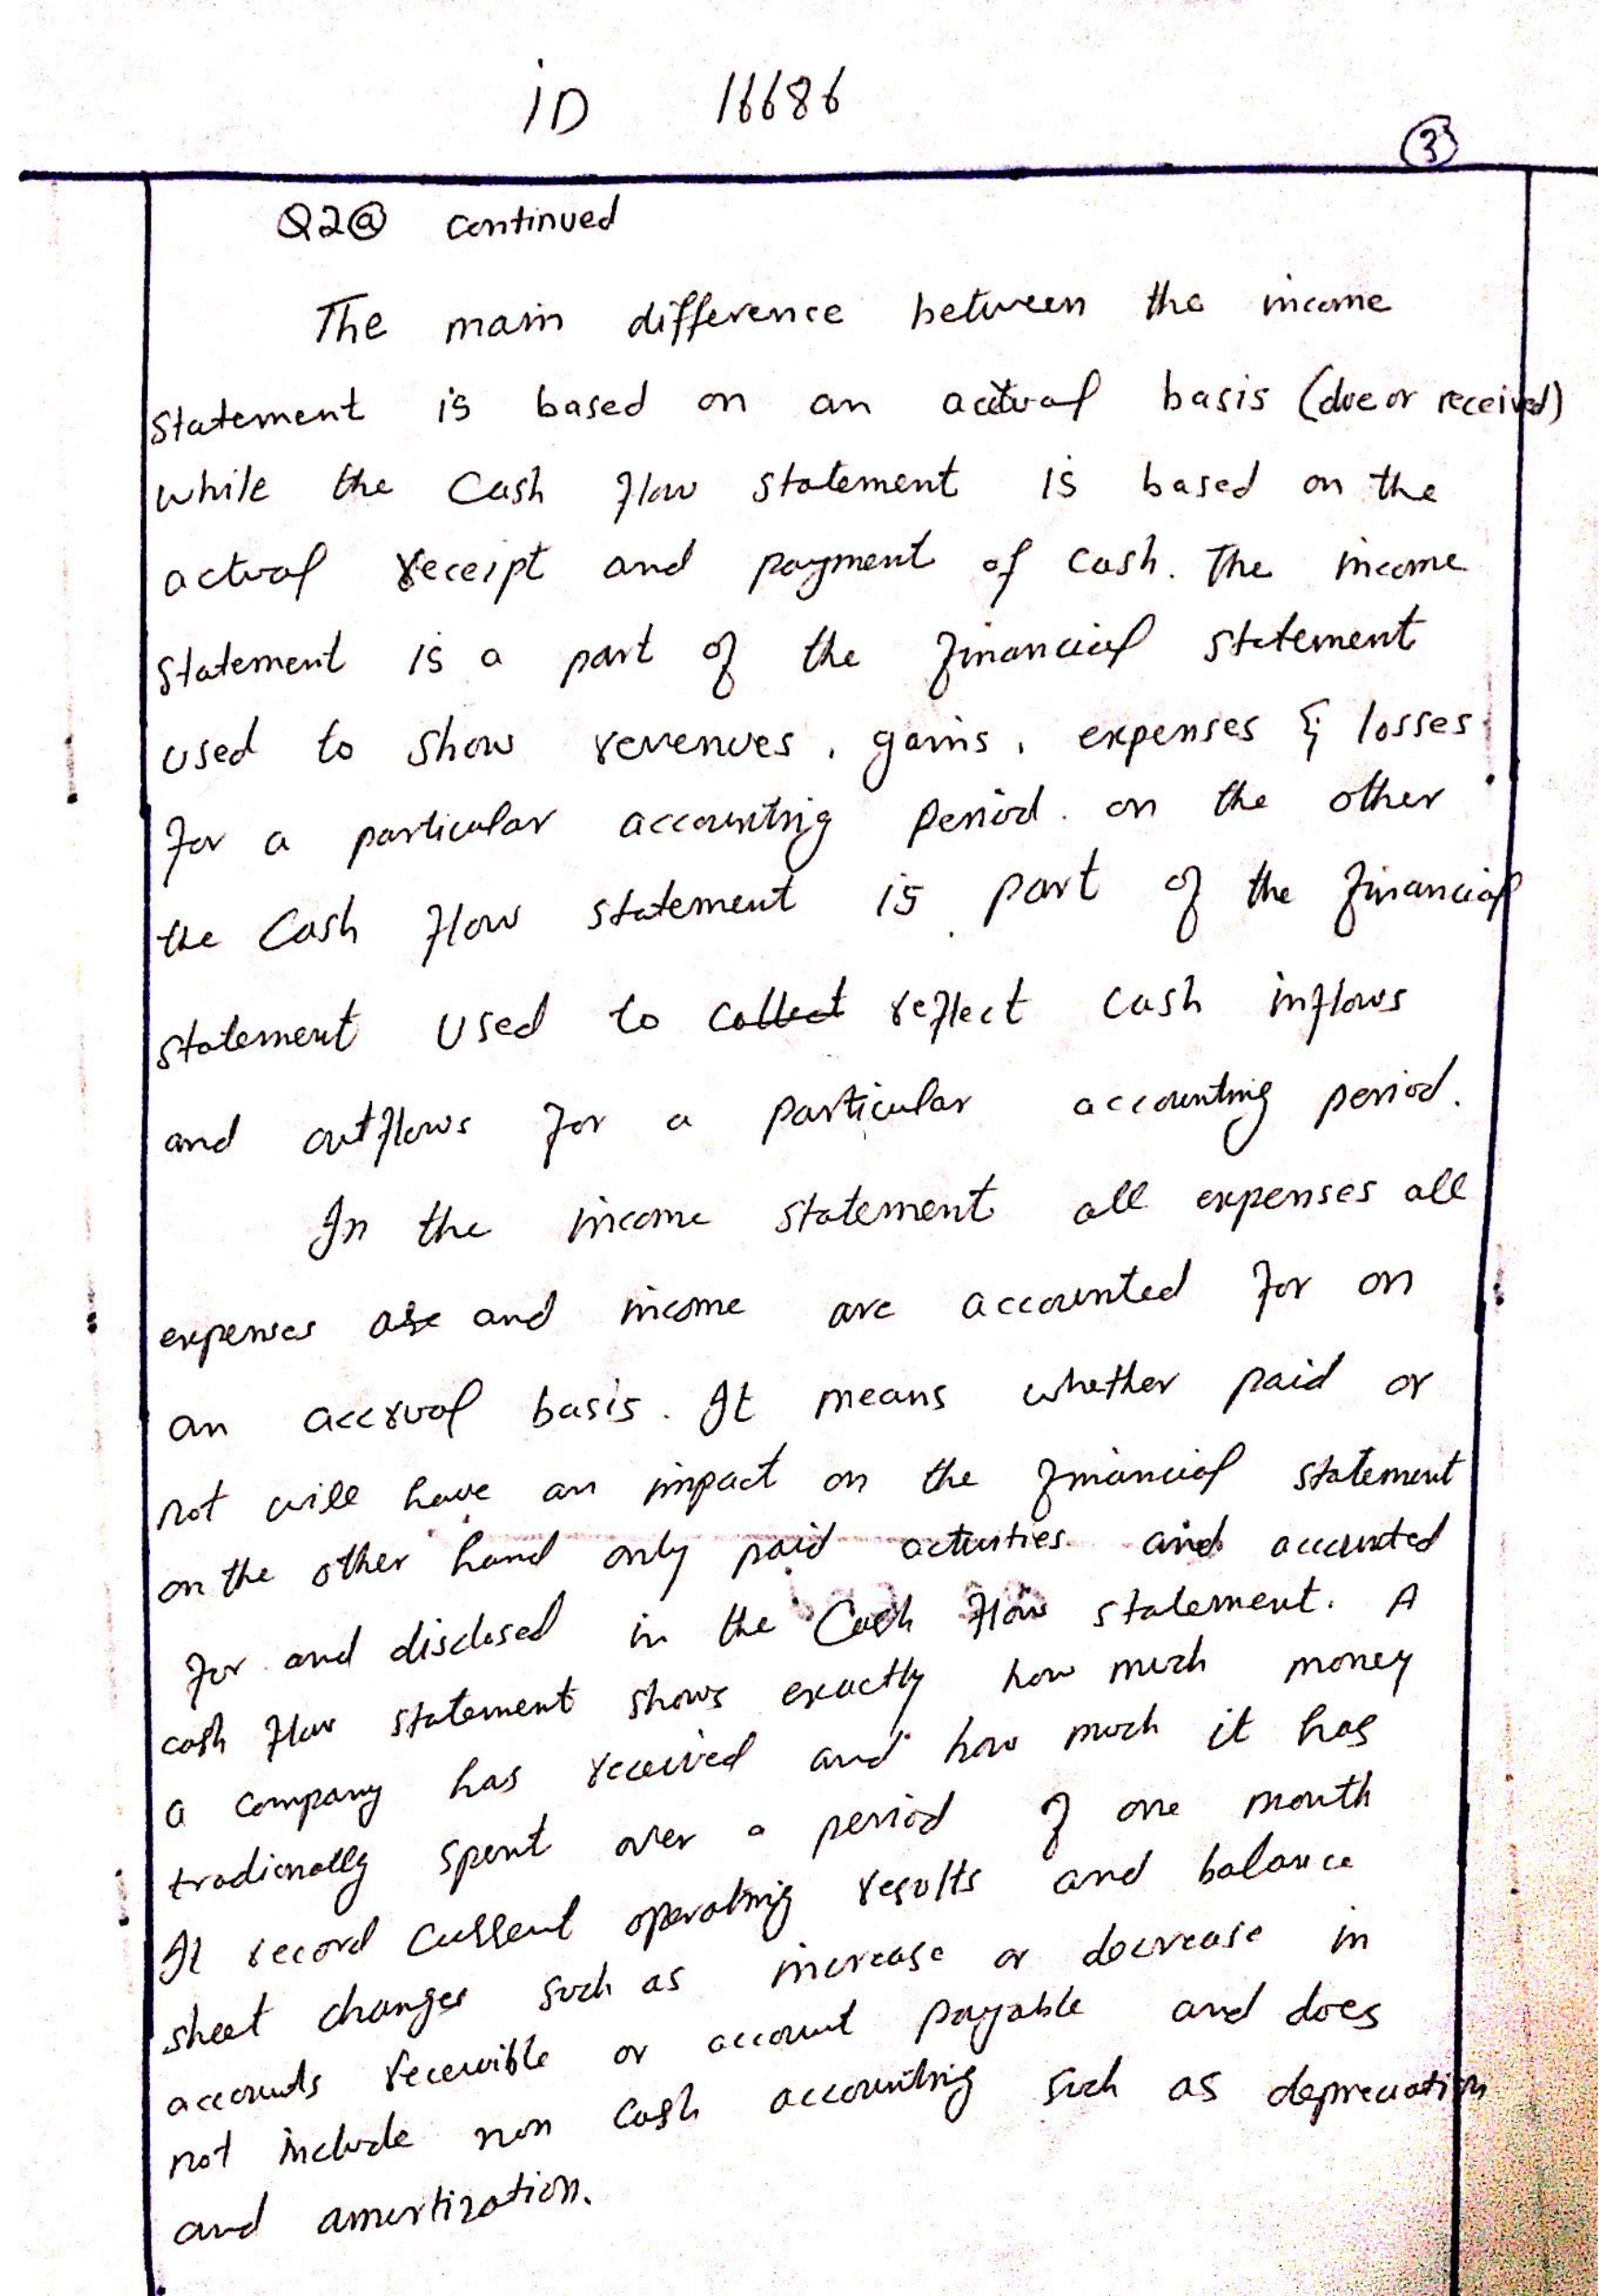 ID 16686
3
Q2(a) continued
The main difference between the income
statement is based on an actual basis (due or received)
while the Cash flow statement is based on the
actual receipt and payment of cash. The income
statement is a part of the financial statement
used to show revenues, gains, expenses & losses
for a particular accounting period. on the other
the Cash flow statement is part of the financial
statement used to collect reflect cash inflows
and outflows for a particular accounting period.
In the income statement all expenses all
expenses are and income are accounted for on
an accrual basis. It means whether paid or
not will have an impact on the financial statement
on the other hand only paid activities and accounted
for and disclosed in the Cash flow statement. A
cash flow statement shows exactly how much money
a company has received and how much it has
tradionally spent over a period of one month
It record current operating results and balance
sheet changes such as increase or decrease in
accounts receivible or account payable and does
not include non cash accounting such as depreciation
and amortization.